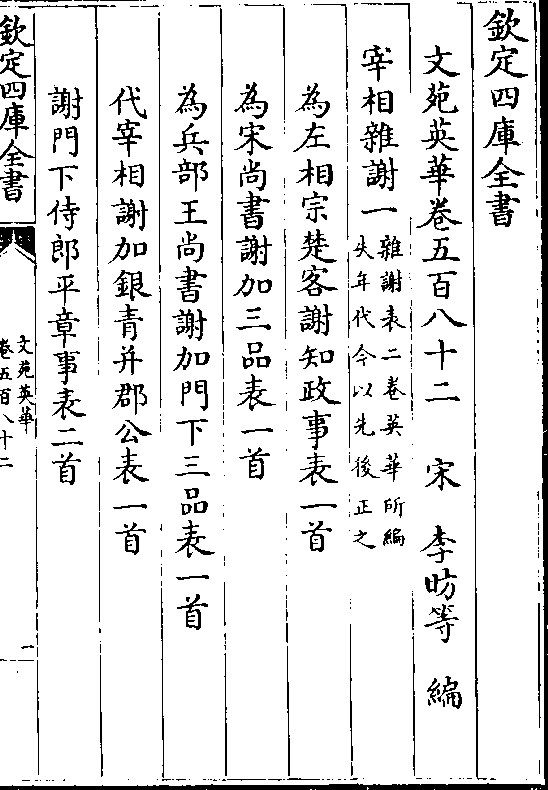 欽定四庫全書
文苑英華卷五百八十二　宋　李昉等　編
宰相雜謝一　雜謝表二卷英華所編
失年代今以先後正之
為左相宗楚客謝知政事表一首
為宋尚書謝加三品表一首
為兵部王尚書謝加門下三品表一首
代宰相謝加銀青并郡公表一首
謝門下侍郎平章事表二首
欽定四庫全書
文苑英華
卷五百八十二
一